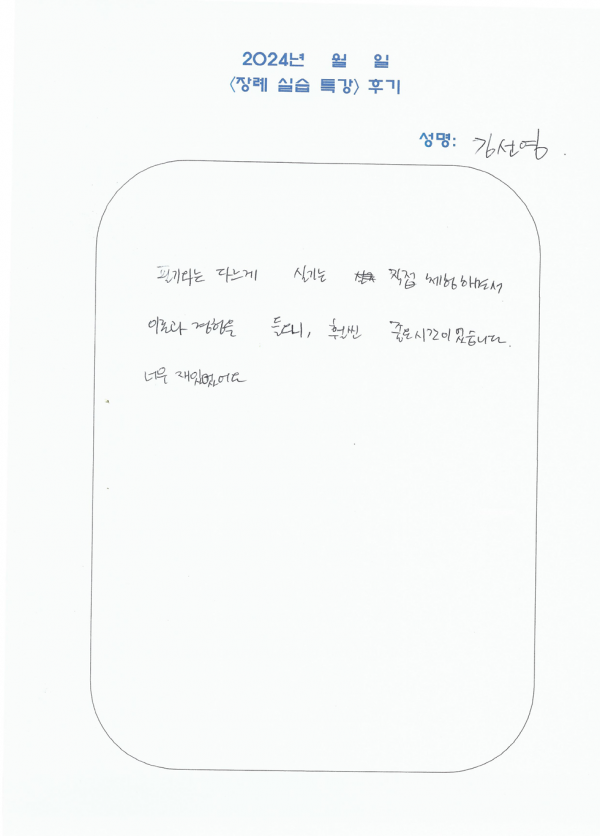 2024년 월 일
<장례 실습 특강> 후기
성명: 김선영
필기와는 다르게 실기는 직접 체험하면서
이론과 경험을 들으니, 훨씬 좋은시간이었습니다.
너무 재밌었어요